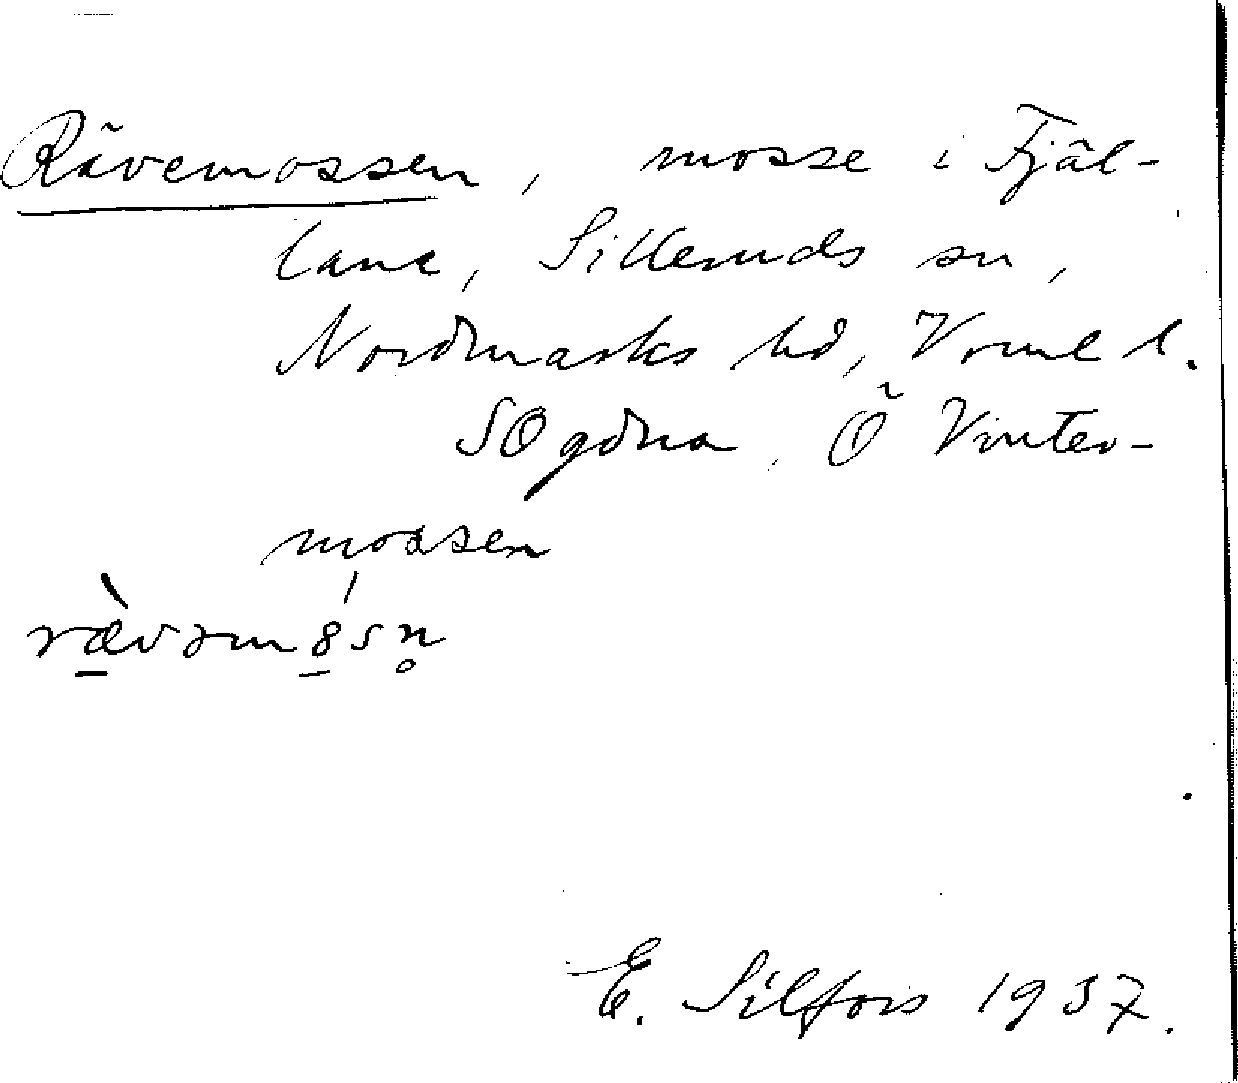 Rävemossen, mosse i Fjäl-
lane, Silleruds sn,
Nordmarks hd, Vrml l.
SO gdna, Ö Vinter-
mossen
E. Silfors 1937.